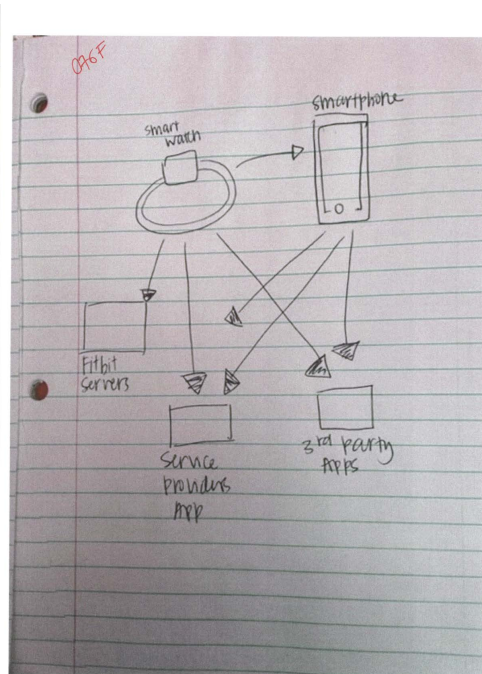 0A6F
smartphone
smart
watch
Fitbit
servers
service
providers
App
3rd party
Apps